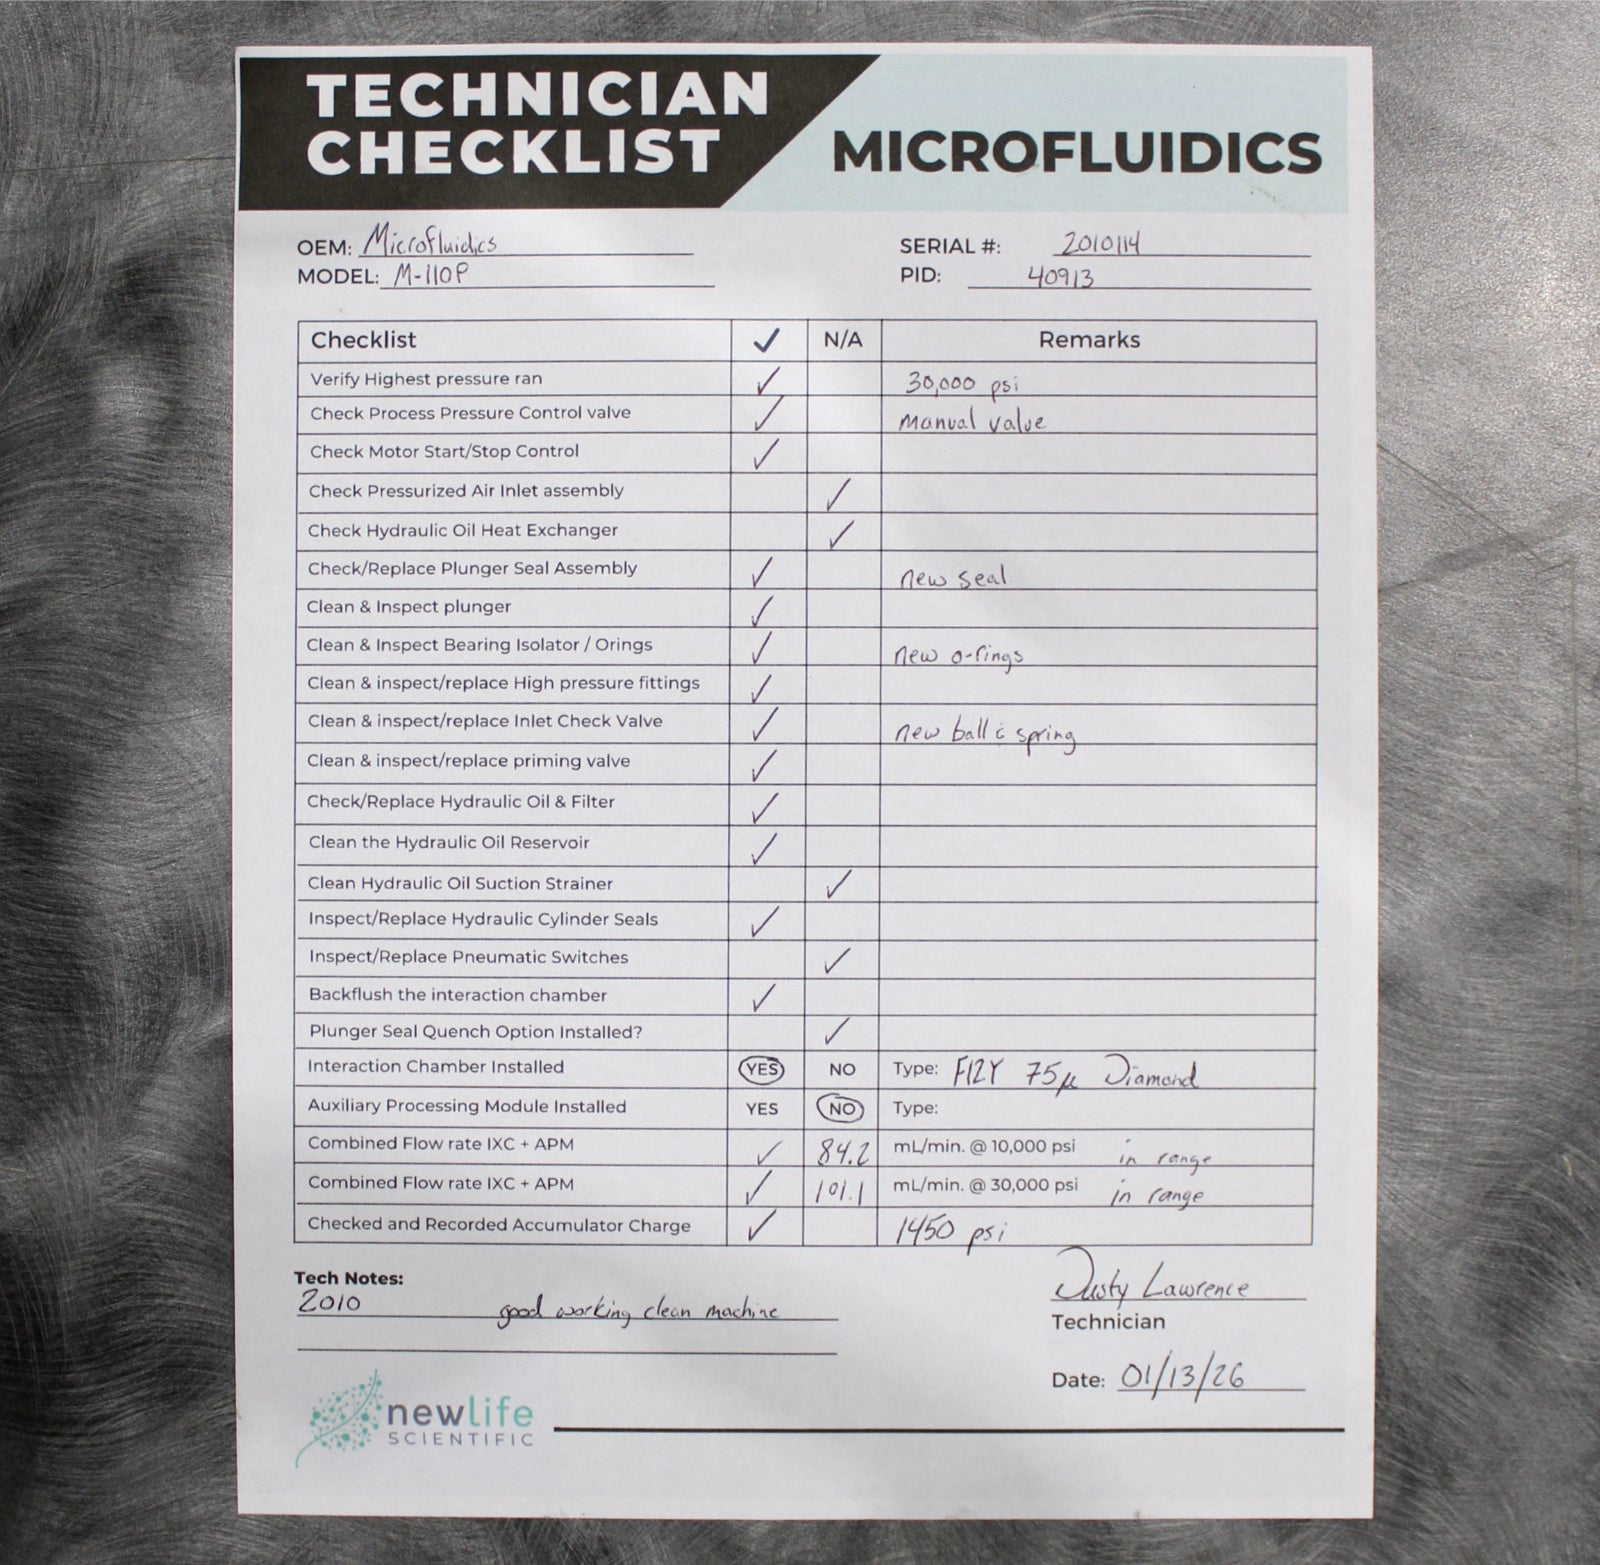 TECHNICIAN
CHECKLIST
MICROFLUIDICS
OEM: Microfluidics
SERIAL #: 2010114
MODEL: M-110P
PID: 40913
Checklist ✓ N/A Remarks
Verify Highest pressure ran ✓ 30,000 psi
Check Process Pressure Control valve ✓ manual valve
Check Motor Start/Stop Control ✓
Check Pressurized Air Inlet assembly ✓
Check Hydraulic Oil Heat Exchanger ✓
Check/Replace Plunger Seal Assembly ✓ new seal
Clean & Inspect plunger ✓
Clean & Inspect Bearing Isolator / Orings ✓ new o-rings
Clean & inspect/replace High pressure fittings ✓
Clean & inspect/replace Inlet Check Valve ✓ new ball & spring
Clean & inspect/replace priming valve ✓
Check/Replace Hydraulic Oil & Filter ✓
Clean the Hydraulic Oil Reservoir ✓
Clean Hydraulic Oil Suction Strainer ✓
Inspect/Replace Hydraulic Cylinder Seals ✓
Inspect/Replace Pneumatic Switches ✓
Backflush the interaction chamber ✓
Plunger Seal Quench Option Installed? ✓
Interaction Chamber Installed YES NO Type: F12Y 75µ Diamond
Auxiliary Processing Module Installed YES NO Type:
Combined Flow rate IXC + APM ✓ 84.2 mL/min. @ 10,000 psi in range
Combined Flow rate IXC + APM ✓ 101.1 mL/min. @ 30,000 psi in range
Checked and Recorded Accumulator Charge ✓ 1450 psi
Tech Notes:
2010 good working clean machine
Dusty Lawrence
Technician
Date: 01/13/26
newlife
SCIENTIFIC